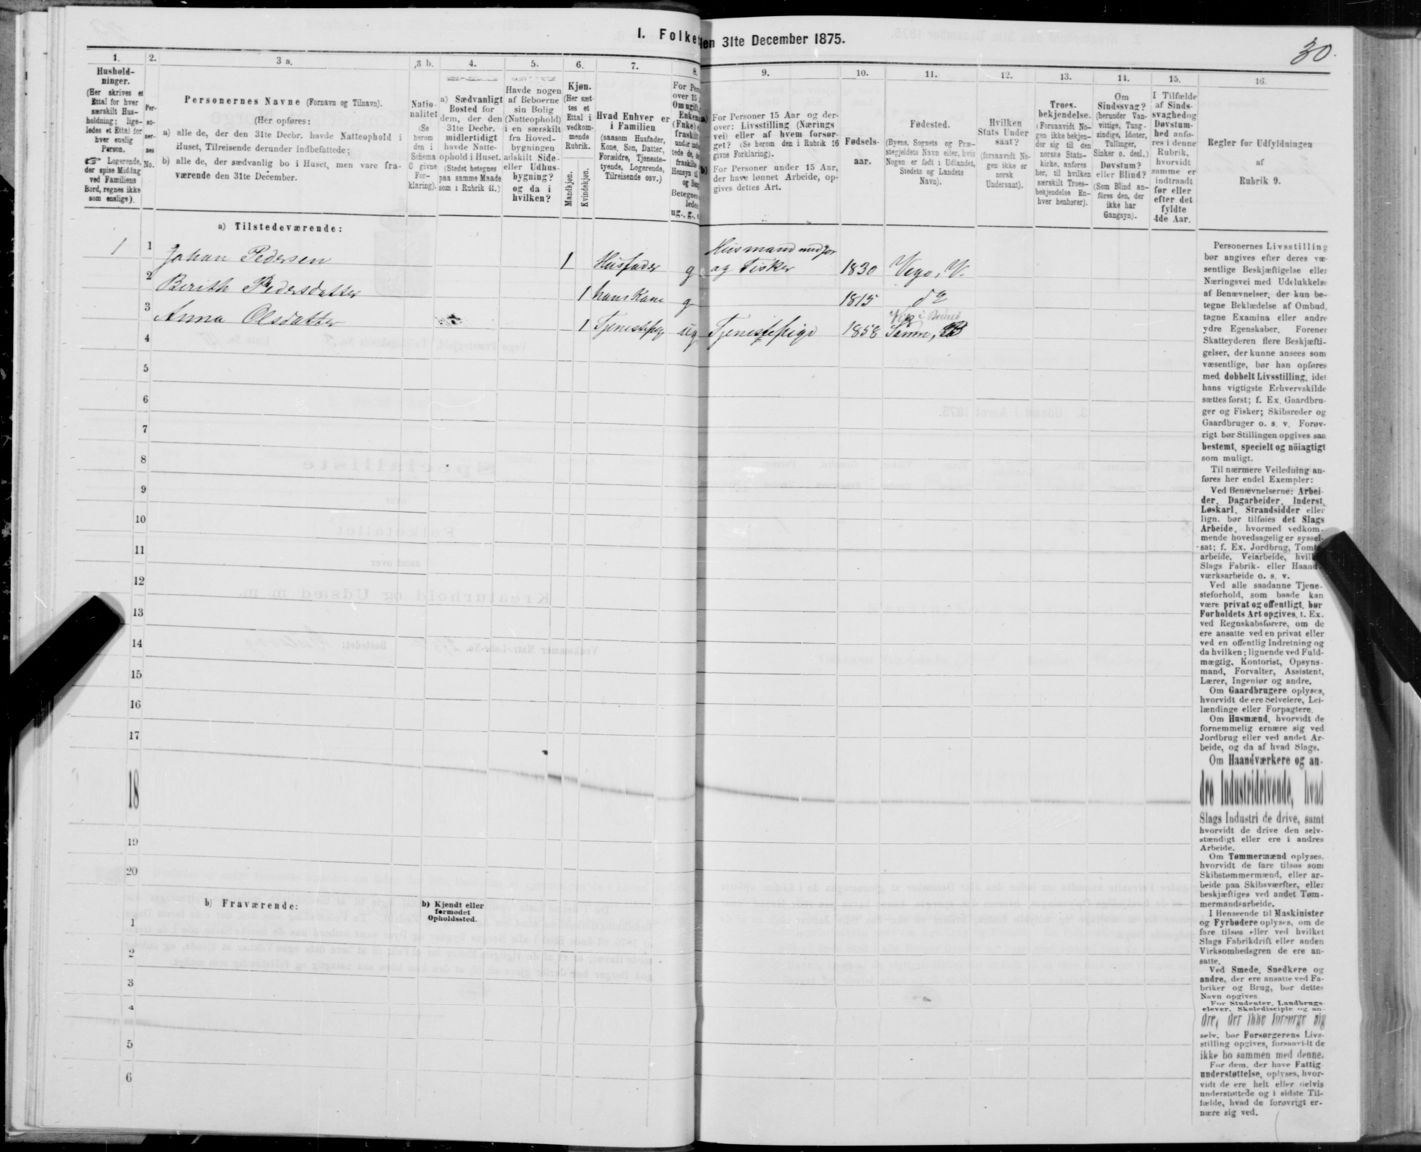 I. Folke
den 31te December 1875.
30.
1.
Hushold-
ninger.
(Her skrives et
Ettal for hver
særskilt Hus-
holdning; lige-
ledes et Ettal for
hver enslig
Person.
Logerende,
der spise Middag
ved Familiens
Bord, regnes ikke
som enslige).
2.
Per-
so-
ner-
nes
No.
3 a.
Personernes Navne (Fornavn og Tilnavn).
(Her opføres:
a) alle de, der den 31te Decbr. havde Natteophold i
Huset, Tilreisende derunder indbefattede;
b) alle de, der sædvanlig bo i Huset, men vare fra-
værende den 31te December.
3 b.
Natio-
nalitet
(Se
herom
den i
Schema
C givne
For-
klaring).
4.
a) Sædvanligt
Bosted for
dem, der den
31te Decbr.
midlertidigt
havde Natte-
ophold i Huset.
(Stedet betegnes
paa samme Maade
som i Rubrik 11.)
5.
Havde nogen
af Beboerne
sin Bolig
(Natteophold)
i en særskilt
fra Hoved-
bygningen
adskilt Side-
eller Udhus-
bygning?
og da i
hvilken?
6.
Kjøn.
(Her sæt-
tes et
Ettal i
vedkom-
mende
Rubrik.
Mandkjøn.
Kvindekjøn.
7.
Hvad Enhver er
i Familien
(saasom Husfader,
Kone, Søn, Datter,
Forældre, Tjeneste-
tyende, Logerende,
Tilreisende osv.)
8.
For Per
over 15
Om ugift,
Enkem
(Enke) e
fraskilt
9.
a)
For Personer 15 Aar og der-
over: Livsstilling (Nærings
vei) eller af hvem forsør-
get? (Se herom den i Rubrik 16
givne Forklaring).
b)
For Personer under 15 Aar,
der have lønnet Arbeide, op-
gives dettes Art.
10.
Fødsels-
aar.
11.
Fødested.
(Byens, Sognets og Præ-
stegjeldets Navn eller, hvis
Nogen er født i Udlandet,
Stedets og Landets
Navn).
12.
Hvilken
Stats Under
saat?
(forsaavidt No-
gen ikke er
norsk
Undersaat).
13.
Troes-
bekjendelse.
(Forsaavidt No-
gen ikke bekjen-
der sig til den
norske Stats-
kirke, anføres
her, til hvilken
særskilt Troes-
bekjendelse En-
hver henhører).
14.
Om
Sindssvag?
(herunder Van-
vittige, Tung-
sindige, Idioter,
Tullinger,
Sinker o. desl.).
Døvstum?
eller Blind?
(Som Blind an-
føres den, der
ikke har
Gangsyn).
15.
I Tilfælde
af Sinds-
svaghed og
Døvstum-
hed anfø-
res i denne
Rubrik,
hvorvidt
samme er
indtraadt
før eller
efter det
fyldte
4de Aar.
16.
Regler for Udfyldningen
af
Rubrik 9.
a) Tilstedeværende:
1 1 Johan Pedersen 1 Husfader g Husmand med jor
og Fisker 1830 Vega, V.
2 Berith Pedersdatter 1 hans Kone g 1815 do
3 Anna Olsdatter 1 Tjenestepige ug Tjenestepige 1858
4
5
6
7
8
9
10
11
12
13
14
15
16
17
18
19
20
b) Fraværende:
b) Kjendt eller
formodet
Opholdssted.
1
2
3
4
5
6
Personernes Livsstilling
bør angives efter deres væ-
sentlige Beskjæftigelse eller
Næringsvei med Udelukkelse
af Benævnelser, der kun be-
tegne Beklædelse af Ombud,
tagne Examina eller andre
ydre Egenskaber. Forener
Skatteyderen flere Beskjæfti-
gelser, der kunne ansees som
væsentlige, bør han opføres
med dobbelt Livsstilling, idet
hans vigtigste Erhvervskilde
sættes først; f. Ex. Gaardbru-
ger og Fisker; Skibsreder og
Gaardbruger o. s. v. Forøv-
rigt bør Stillingen opgives saa
bestemt, specielt og nøiagtigt
som muligt.
Til nærmere Veiledning an-
føres her endel Exempler:
Ved Benævnelserne: Arbei-
der, Dagarbeider, Inderst,
Løskarl, Strandsidder eller
lign. bør tilføies det Slags
Arbeide, hvormed vedkom-
mende hovedsagelig er syssel-
sat; f. Ex. Jordbrug, Tomt
arbeide, Veiarbeide, hvilk
Slags Fabrik- eller Haand
værksarbeide o. s. v.
Ved alle saadanne Tjene-
steforhold, som baade kan
være privat og offentligt, bør
Forholdets Art opgives, f. Ex.
ved Regnskabsførere, om de
ere ansatte ved en privat eller
ved en offentlig Indretning og
da hvilken; lignende ved Fuld-
mægtig, Kontorist, Opsyns-
mand, Forvalter, Assistent,
Lærer, Ingeniør og andre.
Om Gaardbrugere oplyses,
hvorvidt de ere Selveiere, Lei-
lændinge eller Forpagtere.
Om Husmænd, hvorvidt de
fornemmelig ernære sig ved
Jordbrug eller ved andet Ar-
beide, og da af hvad Slags.
Om Haandværkere og an-
dre Industridrivende, hvad
Slags Industri de drive, samt
hvorvidt de drive den selv-
stændigt eller ere i andres
Arbeide.
Om Tømmermænd oplyses,
hvorvidt de fare tilsøs som
Skibstømmermænd, eller ar-
beide paa Skibsværfter, eller
beskjæftiges ved andet Tøm-
mermandsarbeide.
I Henseende til Maskinister
og Fyrbødere oplyses, om de
fare tilsøs eller ved hvilket
Slags Fabrikdrift eller anden
Virksomhedsgren de ere an-
satte.
Ved Smede, Snedkere og
andre, der ere ansatte ved Fa-
briker og Brug, bør dettes
Navn opgives.
For Studenter, Landbrugs-
elever, Skoledisciple og an-
dre, der ikke forsørge sig
selv, bør Forsørgerens Livs-
stilling opgives, forsaavidt de
ikke bo sammen med denne.
For dem, der have Fattig-
understøttelse, oplyses, hvor-
vidt de ere helt eller delvis
understøttede og i sidste Til-
fælde, hvad de forøvrigt er-
nære sig ved.